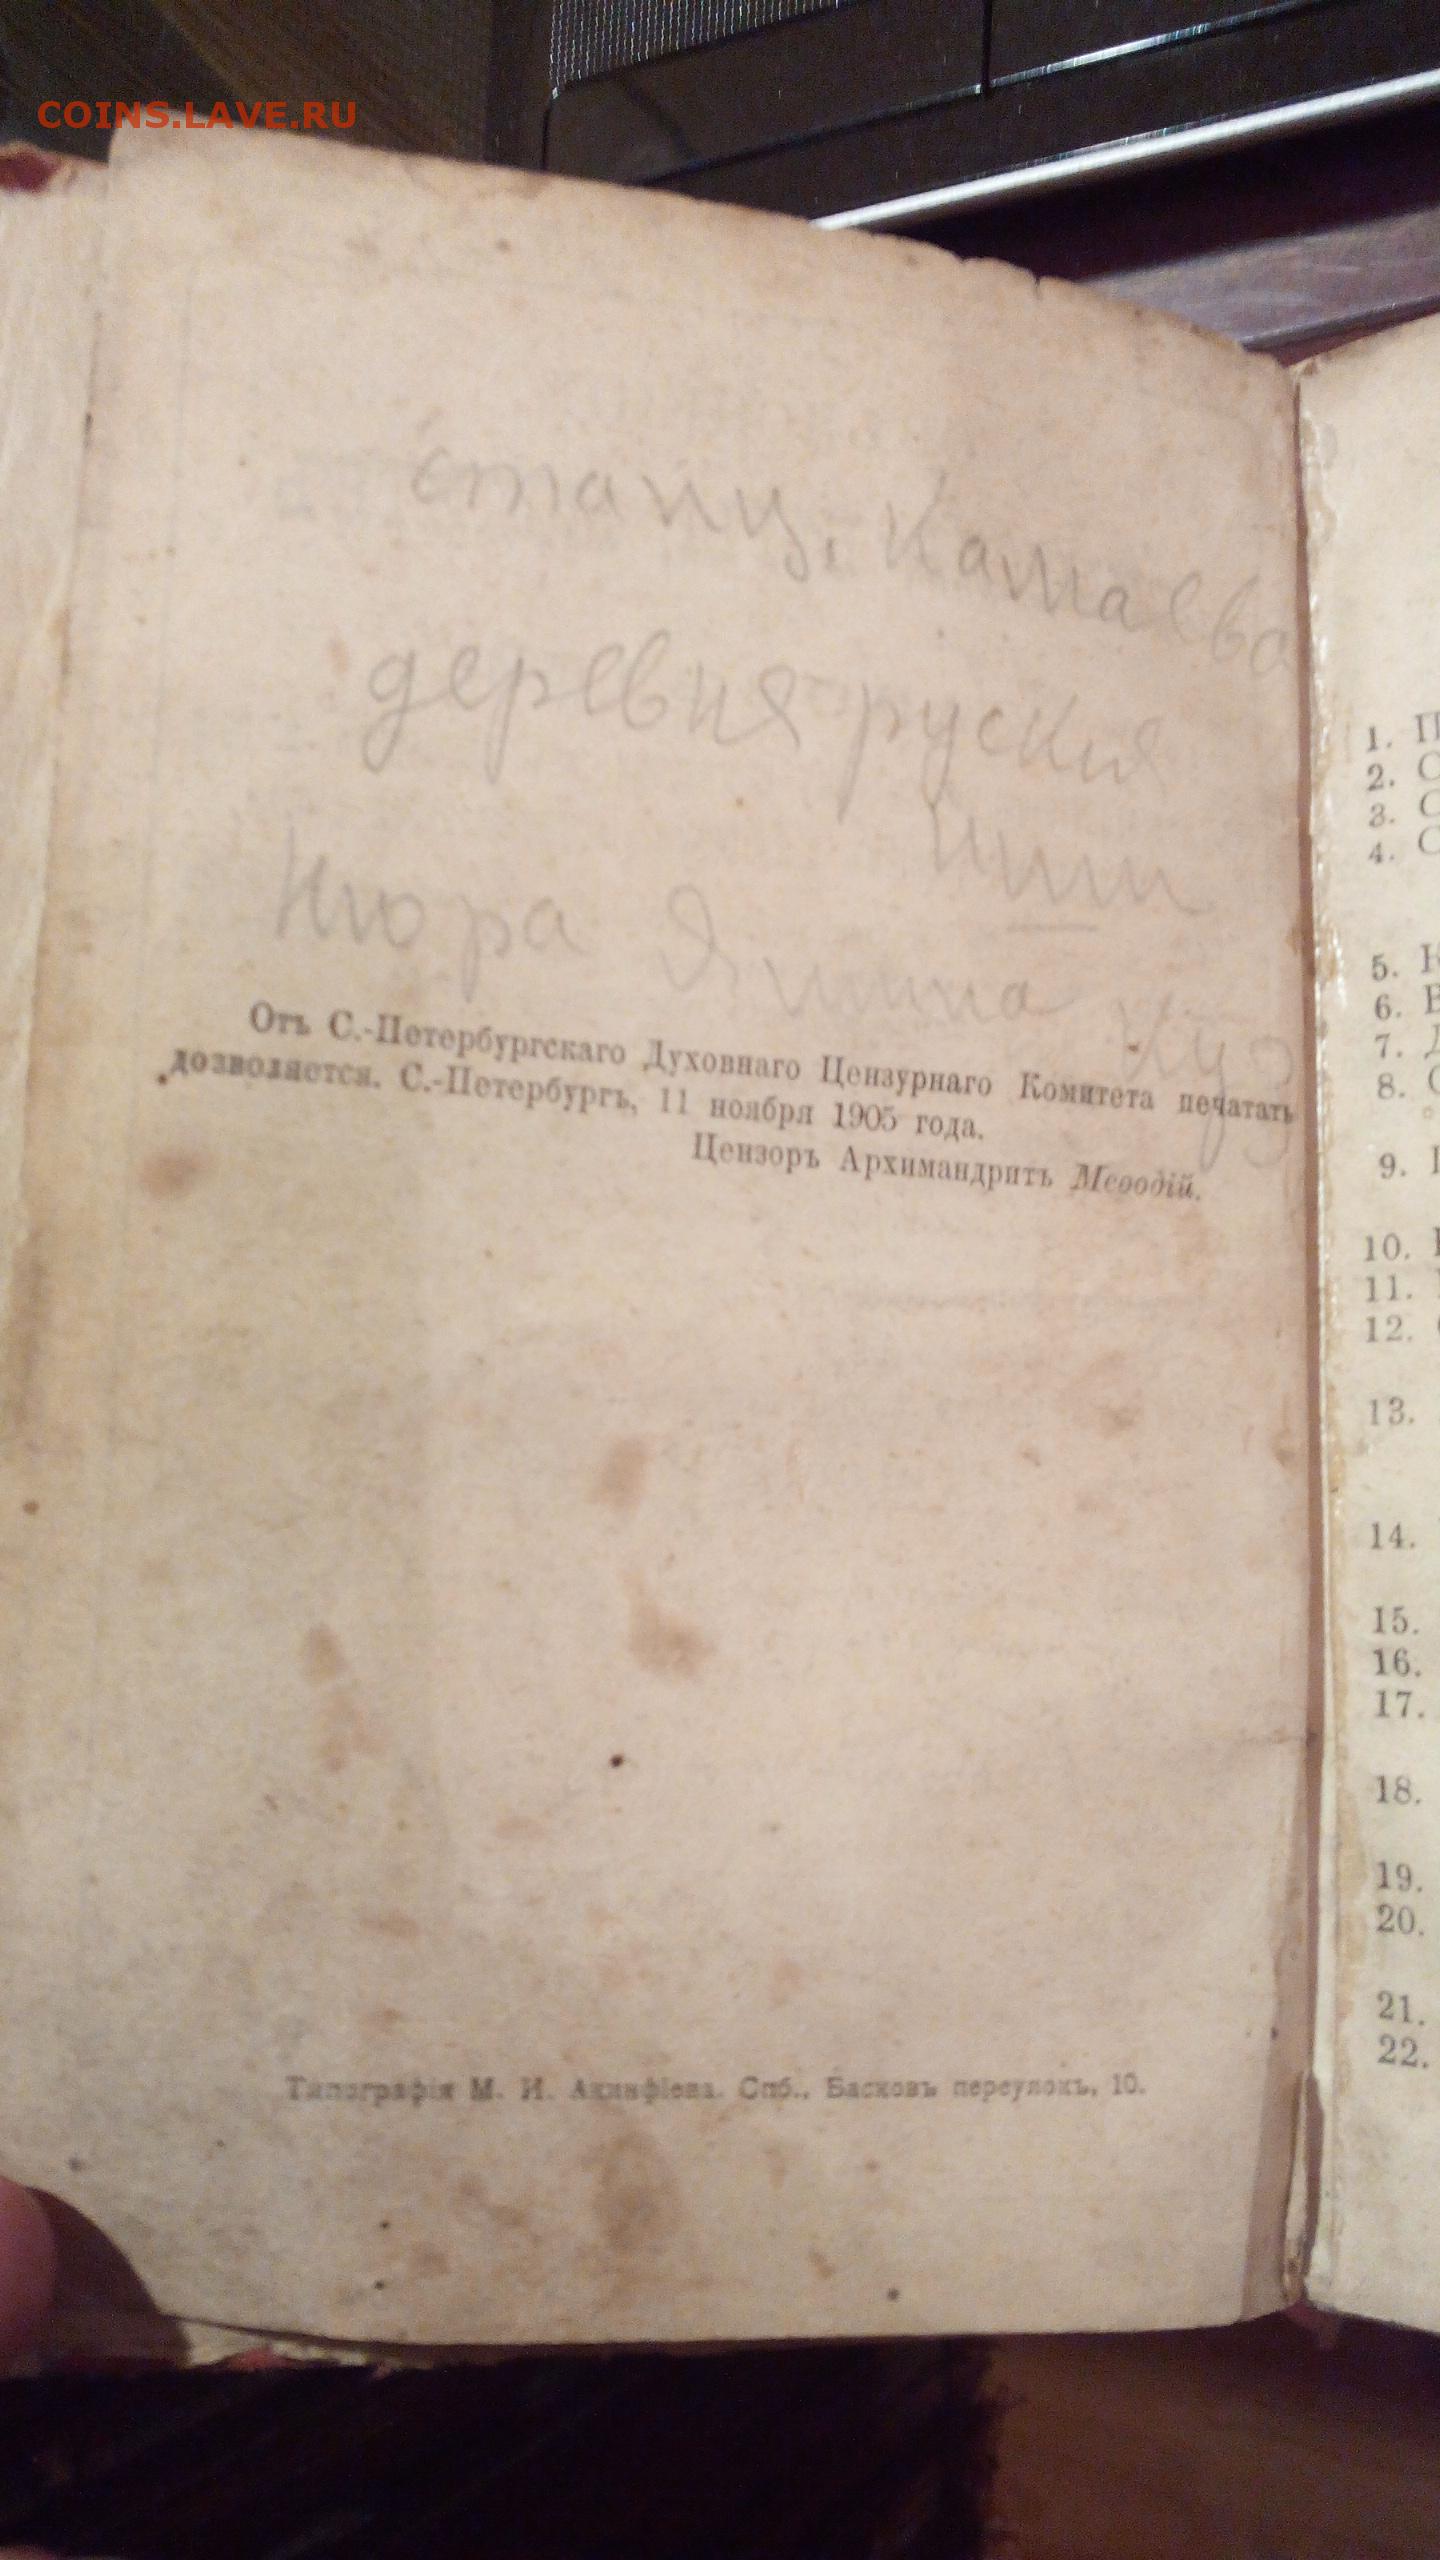 COINS.LAVE.RU
станц. Каташева
деревня руския
Нюра Яшина
Отъ С.-Петербургскаго Духовнаго Цензурнаго Комитета печатать
дозволяется. С.-Петербургъ, 11 ноября 1905 года.
Цензоръ Архимандритъ Меѳодій.
Типографія М. И. Акинфіева. Спб., Басковъ переулокъ, 10.
1. П
2. С
3. С
4. С
5.
6. В
7. Д
8. С
9.
10.
11.
12.
13.
14.
15.
16.
17.
18.
19.
20.
21.
22.